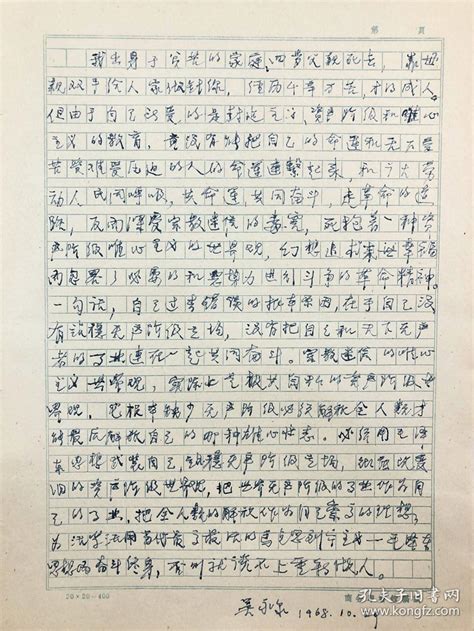 第 页
我出身于贫苦的家庭,四岁父亲死去,靠母
亲双手给人家做针线,经历千辛万苦,才的成人。
但由于自己所受的是封建主义,资产阶级和唯心
主义的教育,竟没有能把自己的命运和天下受
苦受难受压迫的人的命运连系起来,和广大劳
动人民同呼吸,共命运,共同奋斗,走革命的道
路,反而深受宗教迷信的毒害,死抱着一种资
产阶级唯心主义的世界观,幻想追求来世幸福
而忽略了必要的和恶势力进行斗争的革命精神。
一句话,自己过去错误的根本原因,在于自己没
有站稳无产阶级立场,没有把自己和天下无产
者的事业连在一起共同奋斗。宗教迷信的唯心
主义世界观,实际上是极其自私的资产阶级世
界观,它根本缺少无产阶级必须解放全人类才
能最后解放自己的那种雄心壮志。必须用毛泽
东思想武装自己,站稳无产阶级立场,彻底
旧的资产阶级世界观,把世界无产阶级的事业作为自
己的事业,把全人类的解放作为自己的理想,
为活学活用
思想而奋斗终身,否则就谈不上重新做人。
20×20=400
1968.10.
孔夫子旧书网
www.kongfz.com